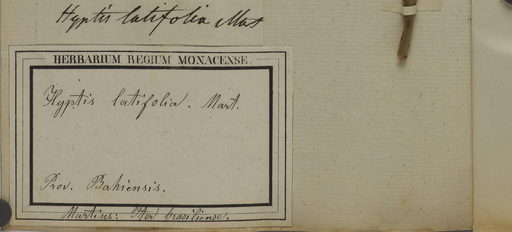 Hyptis latifolia Mart
HERBARIUM REGIUM MONACENSE
Hyptis latifolia. Mart.
Prov. Bahiensis.
Martius: Iter brasiliense.